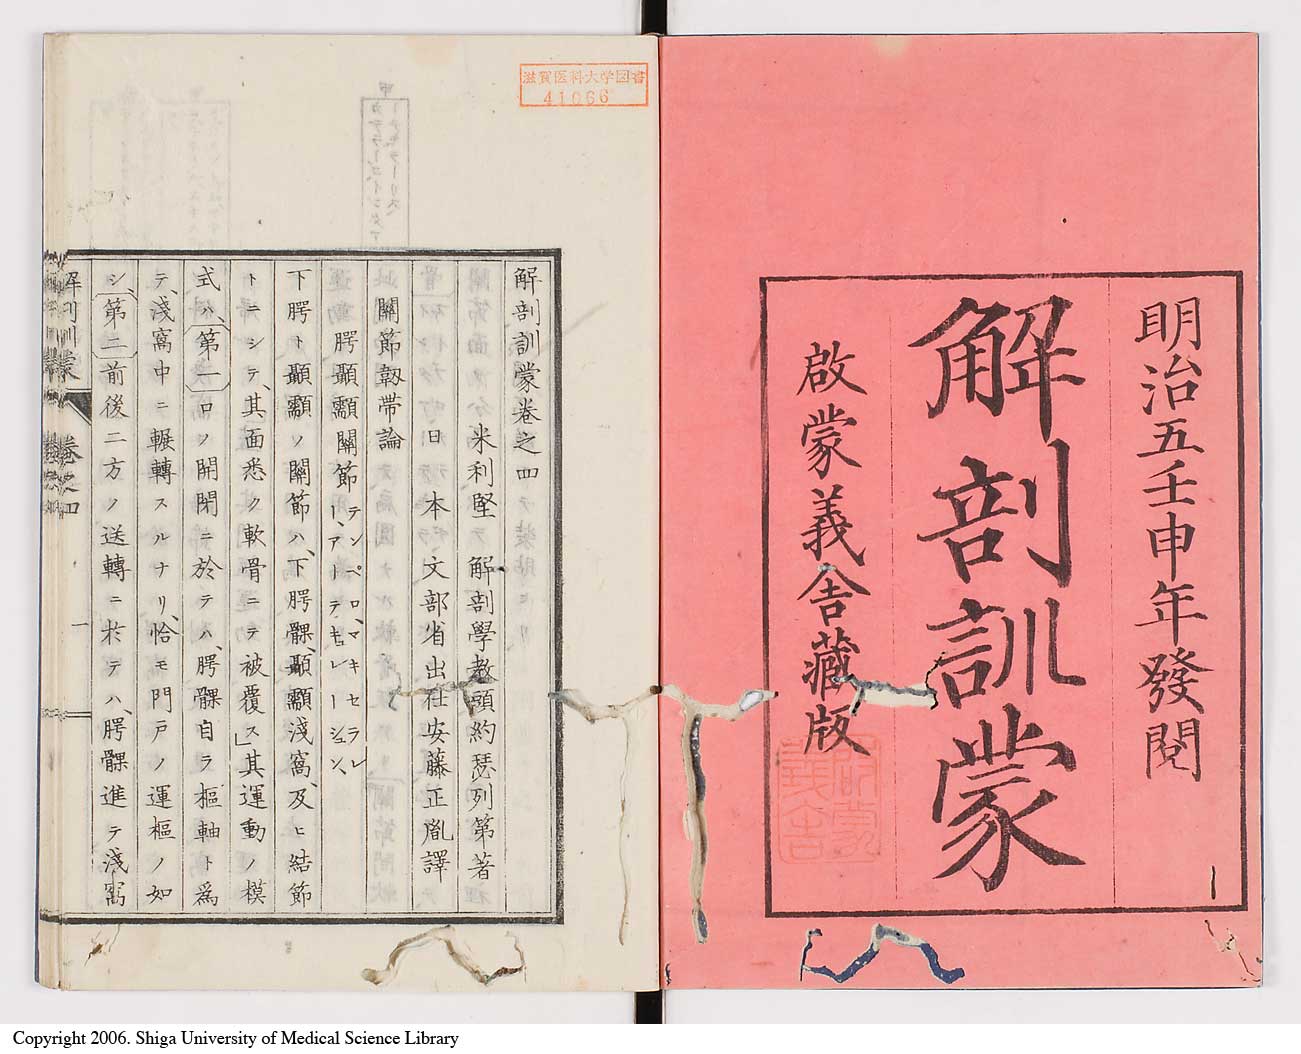 明治五壬申年發閱
解剖訓蒙
啟蒙義舍藏版
滋賀医科大学図書
41066
解剖訓蒙卷之四
米利堅 解剖學教頭約瑟列第著
日本 文部省出仕安藤正胤譯
關節韌帶論
腭顳顬關節 テンペロ、マキセラレー、アーテキュレーシュン、
下腭ト顳顬ノ關節ハ、下腭髁、顳顬淺窩、及ヒ結節
トニシテ、其面悉ク軟骨ニテ被覆ス」其運動ノ模
式ハ、第一口ノ開閉ニ於テハ、腭髁自ラ樞軸ト為
テ、淺窩中ニ輾轉スルナリ、恰モ門戸ノ運樞ノ如
シ、第二前後二方ノ送轉ニ於テハ、腭髁進テ淺窩
解剖訓蒙 卷之四 一
Copyright 2006. Shiga University of Medical Science Library